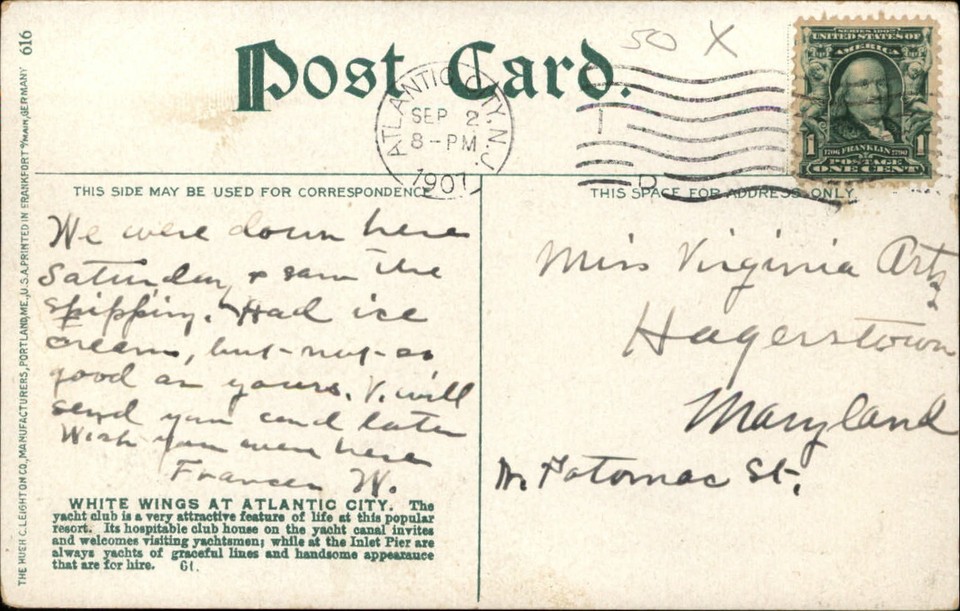 50 X
Post Card.
ATLANTIC CITY, N.J.
SEP 2
8-PM
1907
SERIES 1902
UNITED STATES OF
AMERICA
1 1706 FRANKLIN 1790 1
POSTAGE
ONE CENT
THIS SIDE MAY BE USED FOR CORRESPONDENCE
THIS SPACE FOR ADDRESS ONLY
We were down here
Saturday & saw the
shipping. Had ice
cream, but not as
good as yours. V. will
send you card later
Wish you were here
Frances W.
WHITE WINGS AT ATLANTIC CITY. The
yacht club is a very attractive feature of life at this popular
resort. Its hospitable club house on the yacht canal invites
and welcomes visiting yachtsmen; while at the Inlet Pier are
always yachts of graceful lines and handsome appearance
that are for hire. 61.
Miss Virginia Artz
Hagerstown
Maryland
Potomac St.
THE HUGH C. LEIGHTON CO., MANUFACTURERS, PORTLAND, ME., U.S.A. PRINTED IN FRANKFORT o/MAIN, GERMANY 616